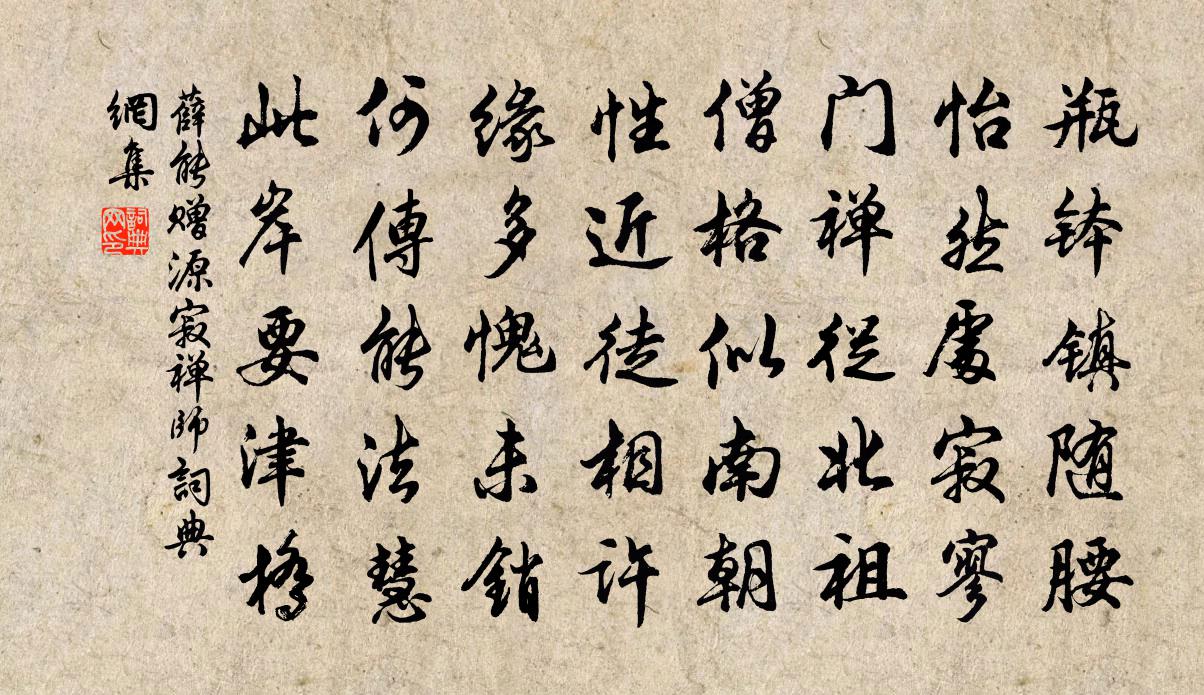 瓶钵镇随腰
怡然處寂寥
门禅從北祖
僧格似南朝
性近徒相許
缘多愧未銷
何傳能法慧
此岸要津橋
薛能赠源寂禅師詞典
網集
詞典
网印